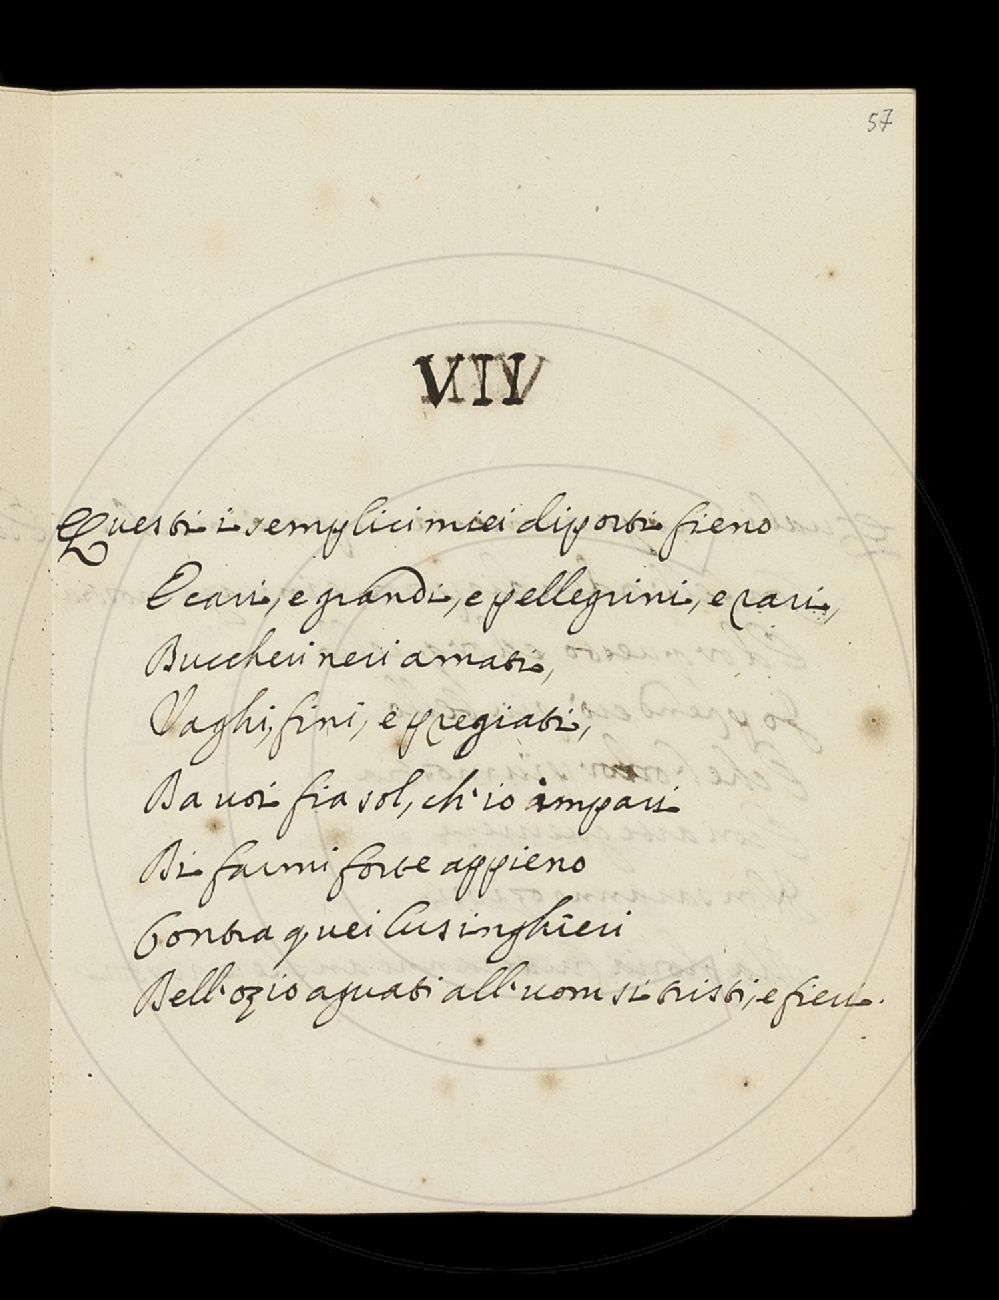 57
VII
Questi i semplici miei diporti fieno
E cari, e grandi, e pellegrini, e rari,
Buccheri neri amati,
Vaghi, fini, e pregiati,
Da voi fia sol, ch'io impari
Di farmi forte appieno
Contra quei lusinghieri
Dell'ozio aguati all'uom sì tristi, e fieri.